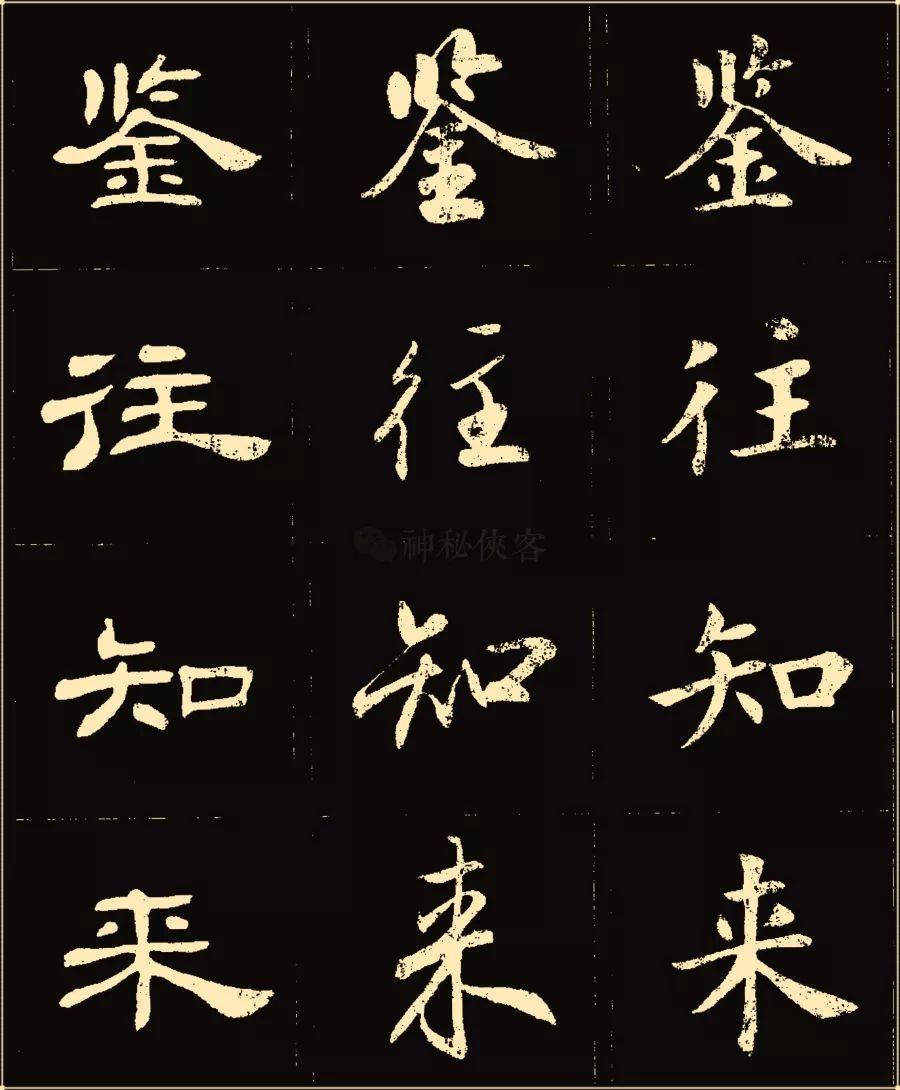 鉴往知来
鉴往知来
鉴往知来
神秘俠客